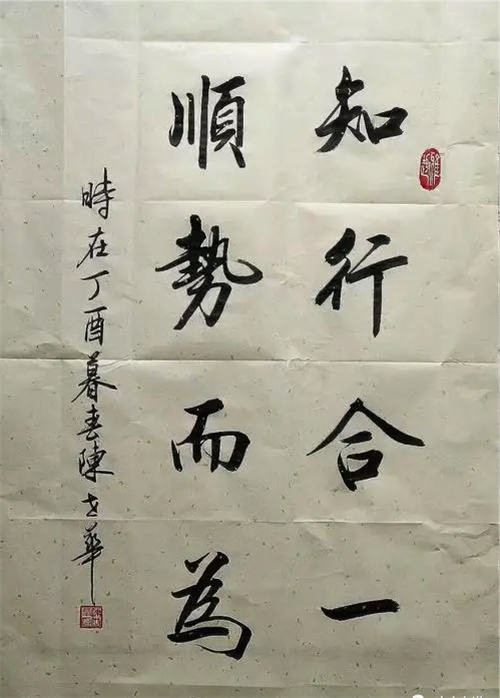 知行合一
順勢而為
時在丁酉暮春陳世華